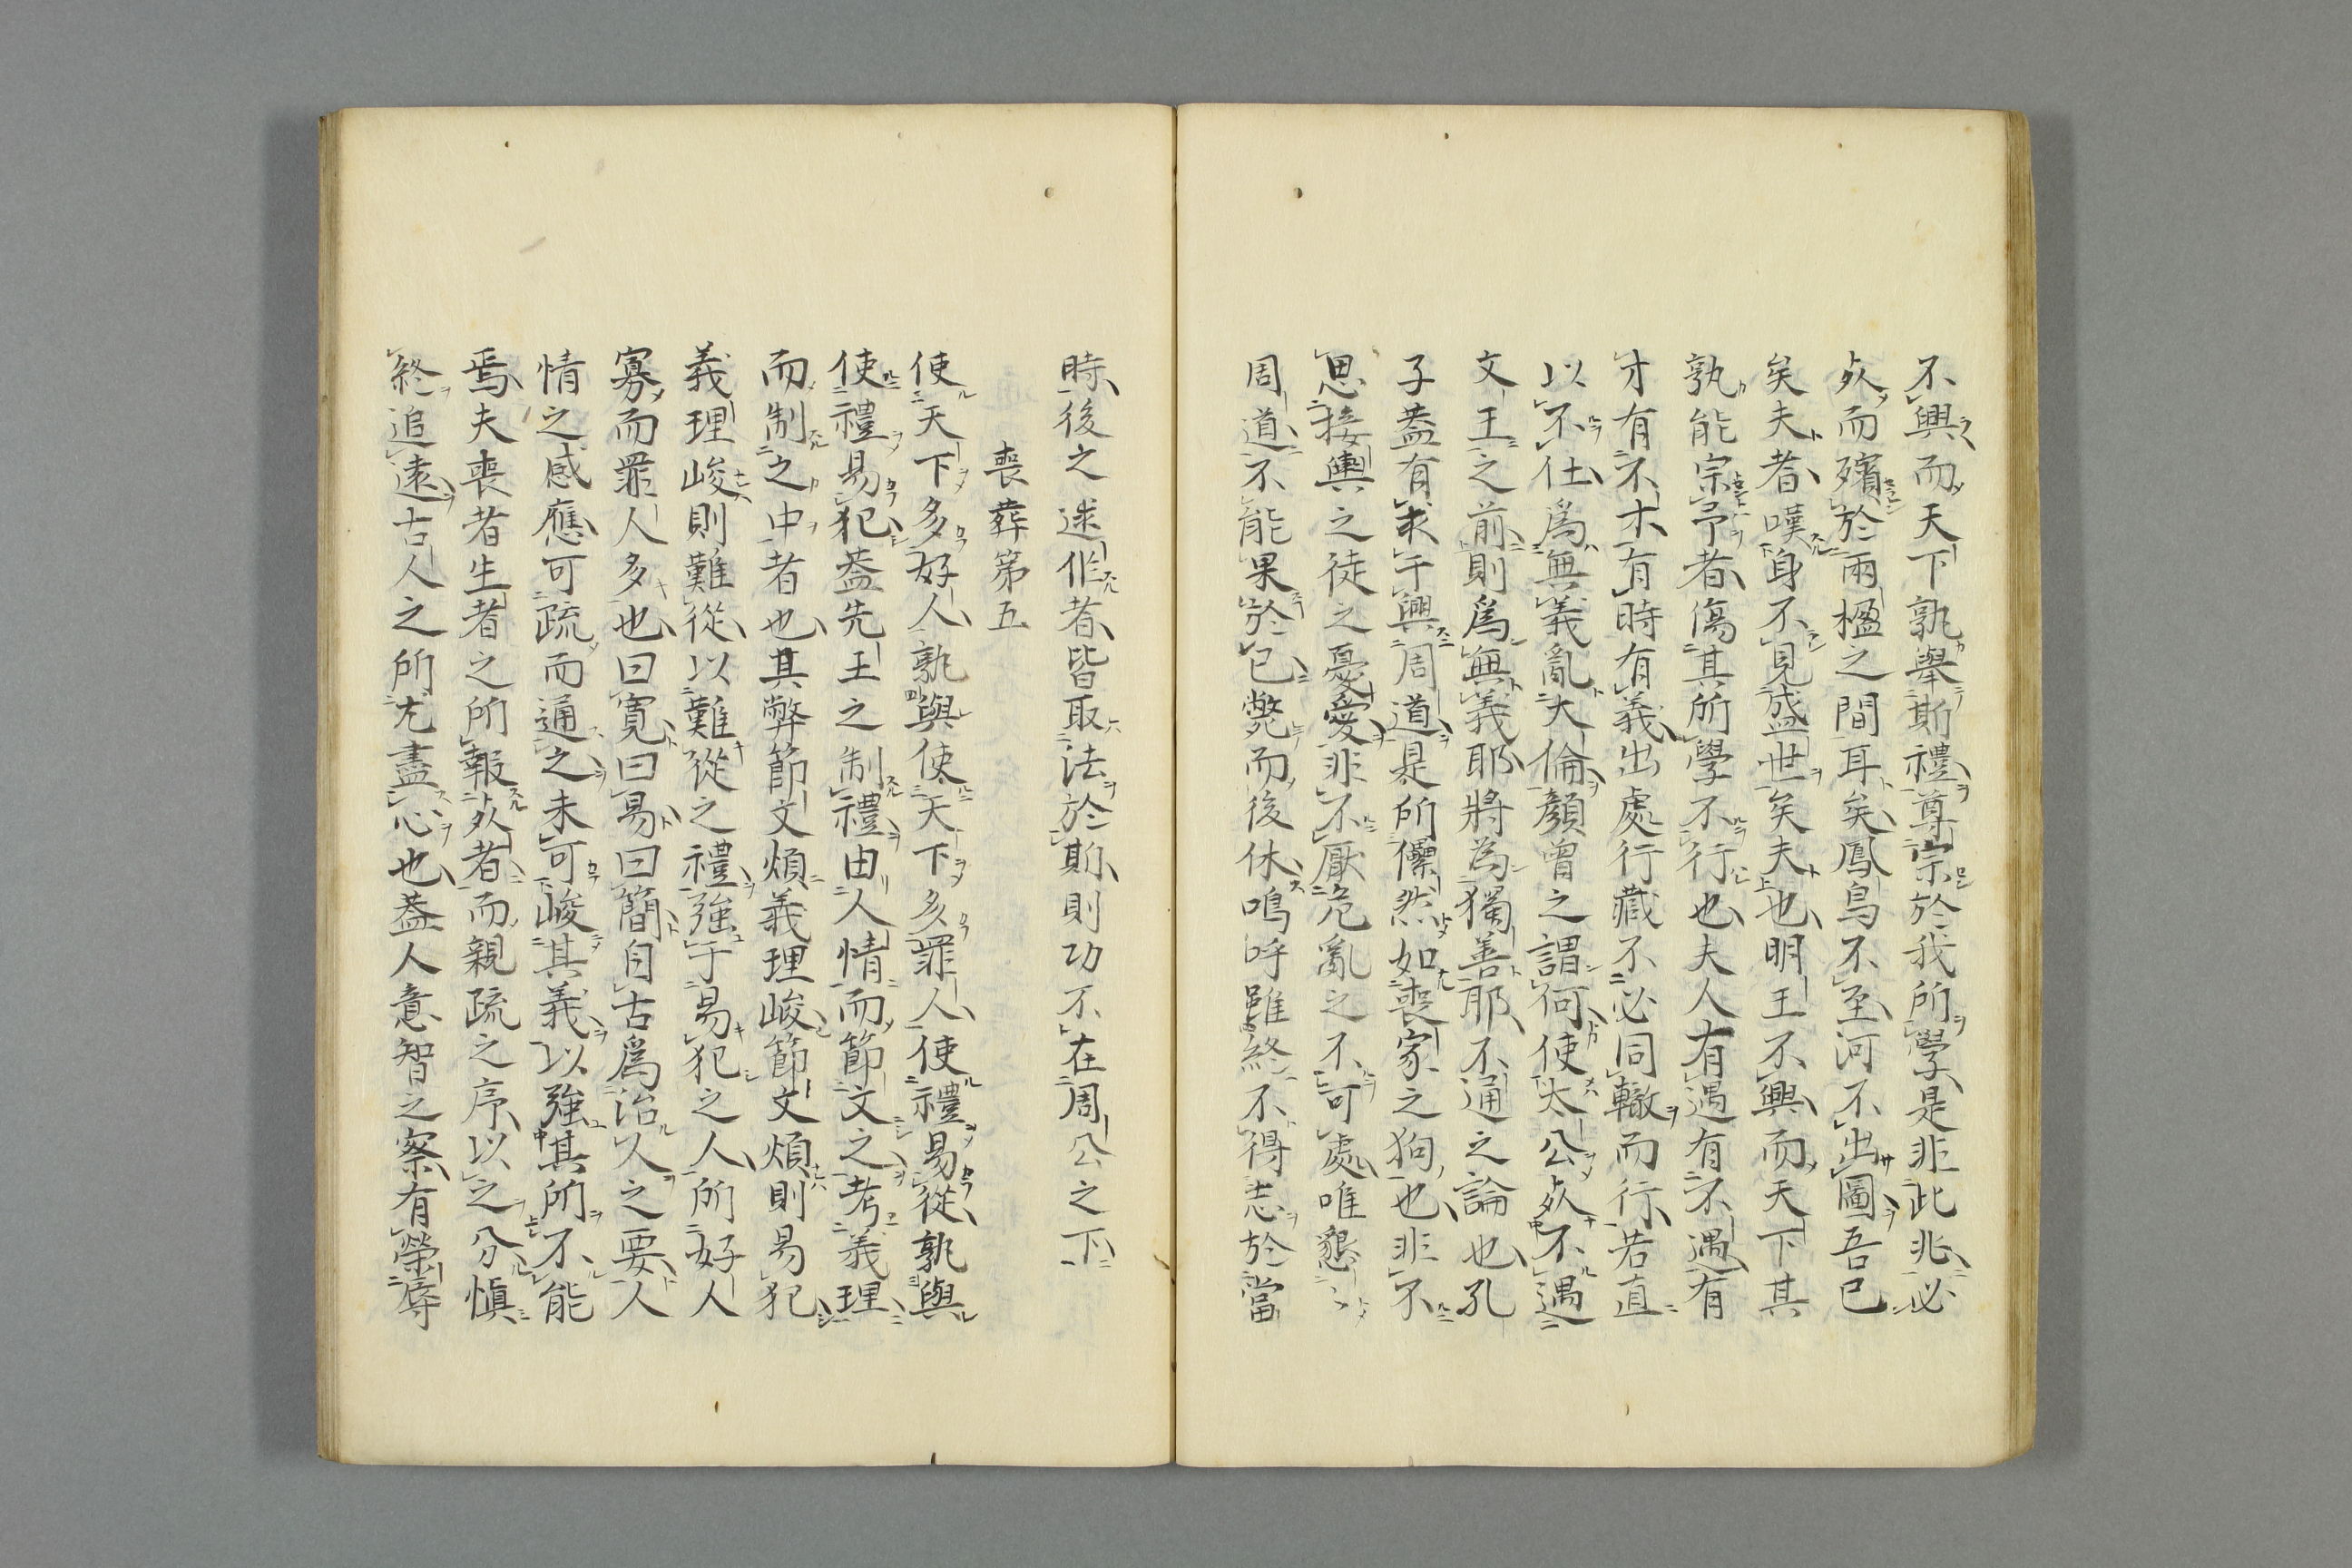 不興而天下孰舉斯禮尊宗於我所學是非此兆必
死而殯於兩楹之間耳矣鳳鳥不至河不出圖吾已
矣夫者嘆身不見盛世矣夫也明王不興而天下其
孰能宗予者傷其所學不行也夫人有遇有不遇有
才有不才有時有義出處行藏不必同轍而行若直
以不仕爲無義亂大倫顏曾之謂何使太公死不遇
文王之前則爲無義耶將為獨善耶不通之論也孔
子葢有求于興周道是所儽然如喪家之狗也非不
思接輿之徒之憂愛非不厭危亂之不可處唯懇〻
周道不能果於已斃而後休嗚呼雖終不得志於當
時後之迷作者皆取法於斯則功不在周公之下
喪葬第五
使天下多好人孰與使天下多罪人使禮易從孰與
使禮易犯葢先王之制禮由人情而節文之考義理
而制之中者也其弊節文煩義理峻節文煩則易犯
義理峻則難從以難從之禮強于易犯之人所好人
寡而罪人多也曰寛曰易曰簡自古爲治人之要人
情之感應可疏而通之未可峻其義以強其所不能
焉夫喪者生者之所報死者而親疏之序以之分愼
終追遠古人之所尤盡心也葢人意智之察有榮辱